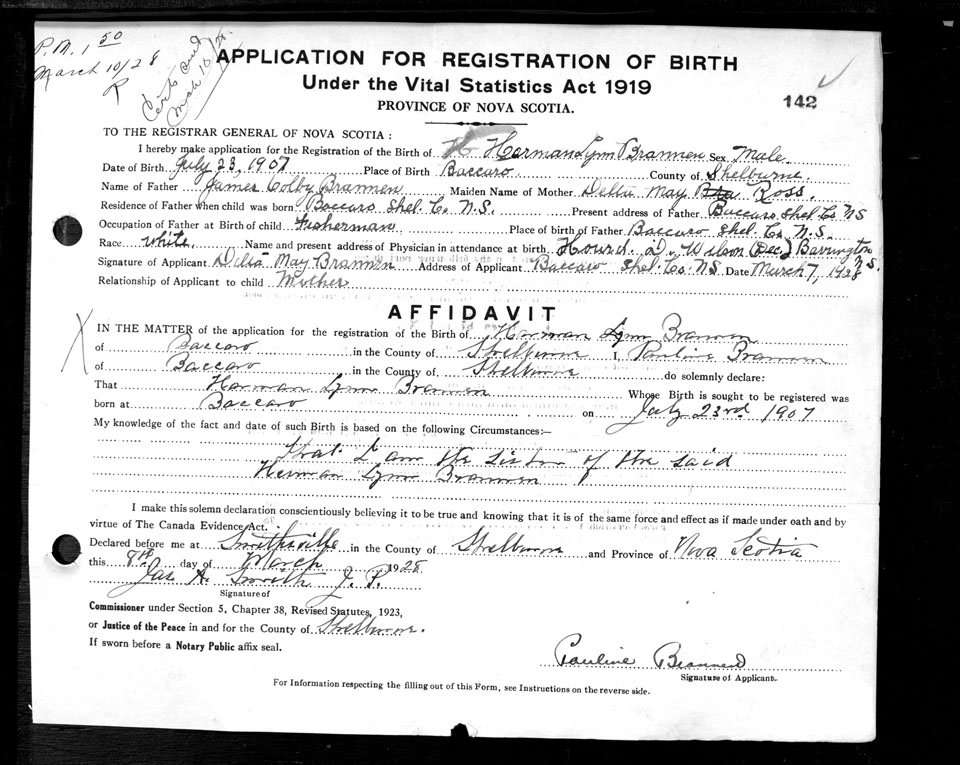 P.M. 1 50
March 10/28
R
Cert
Mch 10/28
APPLICATION FOR REGISTRATION OF BIRTH
Under the Vital Statistics Act 1919
PROVINCE OF NOVA SCOTIA.
142
TO THE REGISTRAR GENERAL OF NOVA SCOTIA :
I hereby make application for the Registration of the Birth of Herman Lynn Brannen Sex Male.
Date of Birth July 23, 1907 Place of Birth Baccaro County of Shelburne
Name of Father James Colby Brannen Maiden Name of Mother Delia May Ross
Residence of Father when child was born Baccaro Shel. Co. N.S. Present address of Father Baccaro Shel. Co NS
Occupation of Father at Birth of child Fisherman Place of birth of Father Baccaro Shel. Co. N.S.
Race white. Name and present address of Physician in attendance at birth Wilson (Dec.) Barrington N.S.
Signature of Applicant Delia May Brannen Address of Applicant Baccaro Shel. Co. NS Date March 7, 1928
Relationship of Applicant to child Mother
AFFIDAVIT
IN THE MATTER of the application for the registration of the Birth of Herman Lynn Brannen
of Baccaro in the County of Shelburne I, Pauline Brannen
of Baccaro in the County of Shelburne do solemnly declare:
That Herman Lynn Brannen Whose Birth is sought to be registered was
born at Baccaro on July 23rd 1907
My knowledge of the fact and date of such Birth is based on the following Circumstances:—
that I am the sister of the said
Herman Lynn Brannen
I make this solemn declaration conscientiously believing it to be true and knowing that it is of the same force and effect as if made under oath and by
virtue of The Canada Evidence Act.
Declared before me at Smithsville in the County of Shelburne and Province of Nova Scotia
this 8th day of March 1928
Jas A. Smith J. P.
Signature of
Commissioner under Section 5, Chapter 38, Revised Statutes, 1923,
or Justice of the Peace in and for the County of Shelburne.
If sworn before a Notary Public affix seal.
Pauline Brannen
Signature of Applicant.
For Information respecting the filling out of this Form, see Instructions on the reverse side.